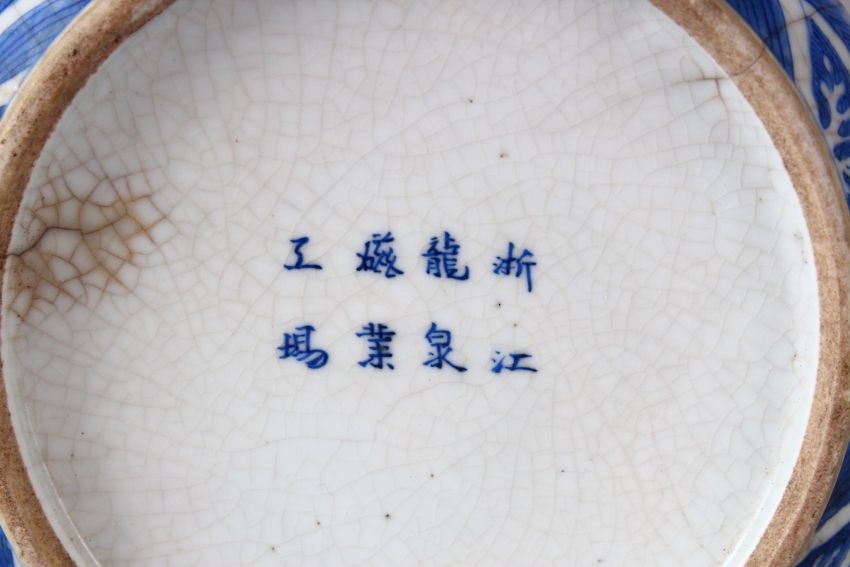 浙江
龍泉
磁業
工場